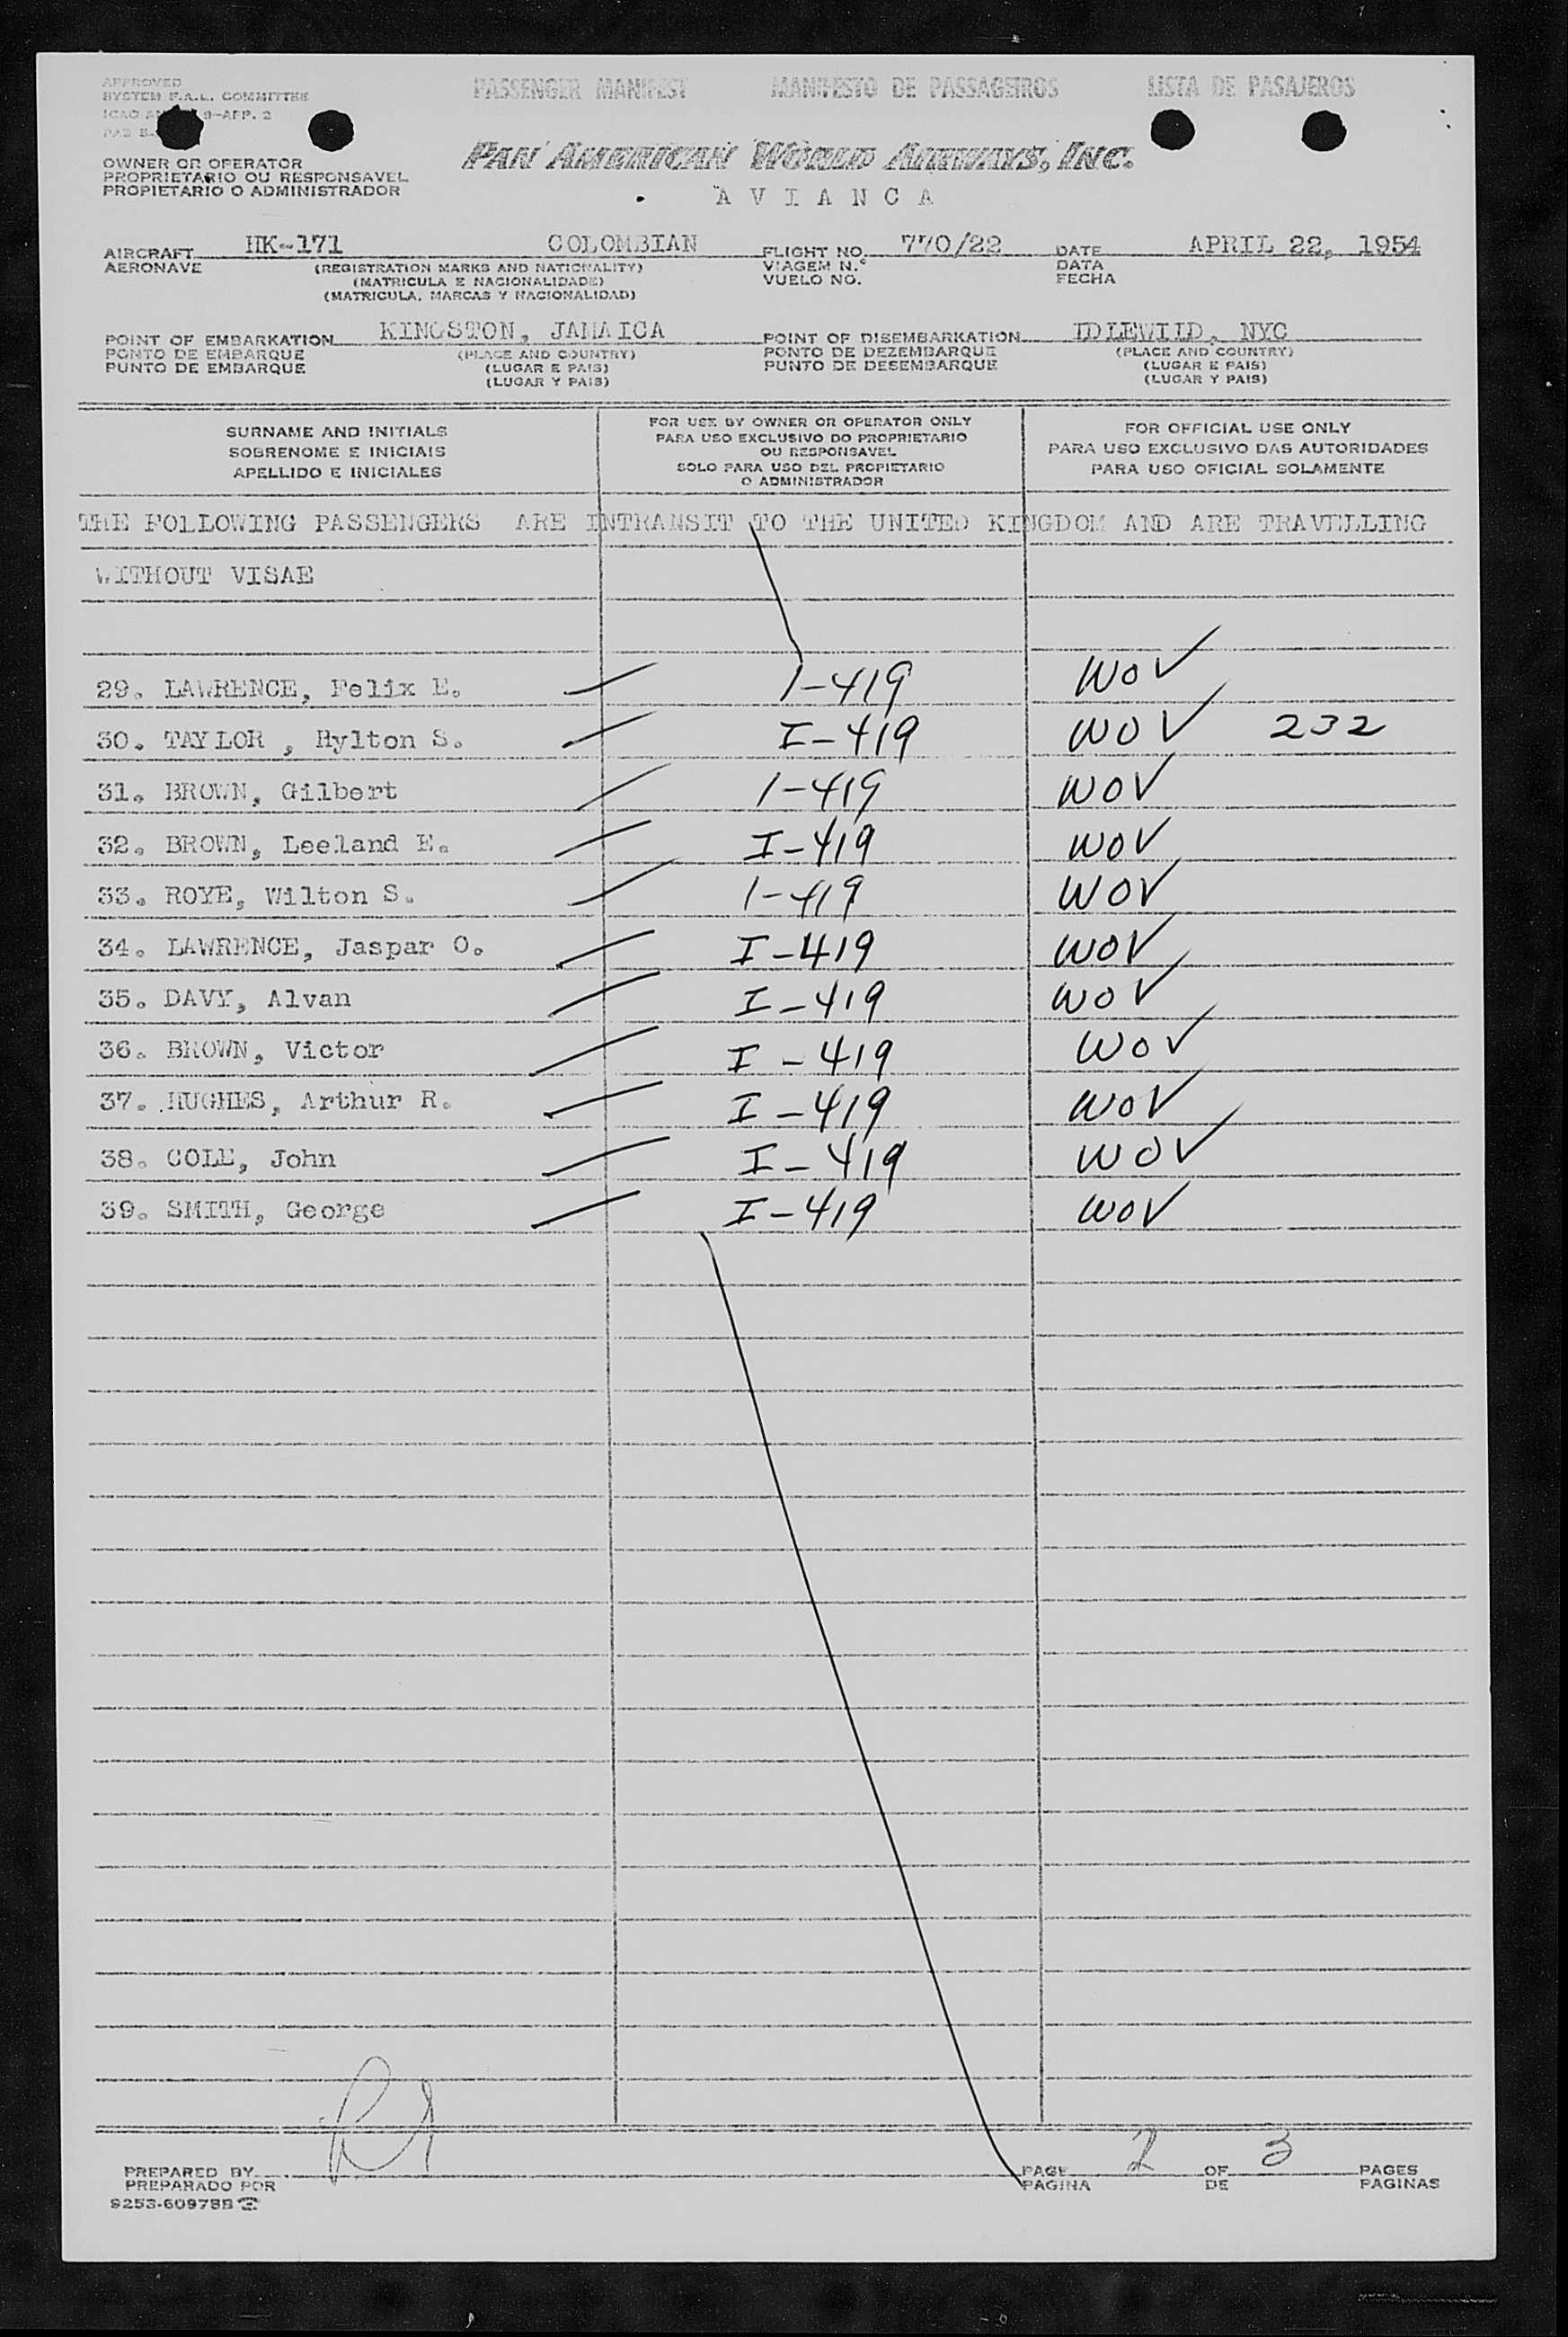 APPROVED PASSENGER MANIFEST MANIFESTO DE PASSAGEIROS LISTA DE PASAJEROS
SYSTEM F.A.L. COMMITTEE
ICAO 9-APP. 2
PAN AMERICAN WORLD AIRWAYS, INC.
OWNER OR OPERATOR
PROPRIETARIO OU RESPONSAVEL
PROPIETARIO O ADMINISTRADOR
AVIANCA
AIRCRAFT HK-171 COLOMBIAN FLIGHT NO. 770/22 DATE APRIL 22, 1954
AERONAVE (REGISTRATION MARKS AND NATIONALITY) VIAGEM N.° DATA
(MATRICULA E NACIONALIDADE) VUELO NO. FECHA
(MATRICULA, MARCAS Y NACIONALIDAD)
POINT OF EMBARKATION KINGSTON, JAMAICA POINT OF DISEMBARKATION IDLEWILD, NYC
PONTO DE EMBARQUE (PLACE AND COUNTRY) PONTO DE DEZEMBARQUE (PLACE AND COUNTRY)
PUNTO DE EMBARQUE (LUGAR E PAIS) PUNTO DE DESEMBARQUE (LUGAR E PAIS)
(LUGAR Y PAIS) (LUGAR Y PAIS)
SURNAME AND INITIALS
SOBRENOME E INICIAIS
APELLIDO E INICIALES
FOR USE BY OWNER OR OPERATOR ONLY
PARA USO EXCLUSIVO DO PROPRIETARIO
OU RESPONSAVEL
SOLO PARA USO DEL PROPIETARIO
O ADMINISTRADOR
FOR OFFICIAL USE ONLY
PARA USO EXCLUSIVO DAS AUTORIDADES
PARA USO OFICIAL SOLAMENTE
THE FOLLOWING PASSENGERS ARE INTRANSIT TO THE UNITED KINGDOM AND ARE TRAVELLING
WITHOUT VISAE
29. LAWRENCE, Felix E. I-419 WOV
30. TAYLOR , Hylton S. I-419 WOV 232
31. BROWN, Gilbert I-419 WOV
32. BROWN, Leeland E. I-419 WOV
33. ROYE, Wilton S. I-419 WOV
34. LAWRENCE, Jaspar O. I-419 WOV
35. DAVY, Alvan I-419 WOV
36. BROWN, Victor I-419 WOV
37. HUGHES, Arthur R. I-419 WOV
38. COLE, John I-419 WOV
39. SMITH, George I-419 WOV
PREPARED BY PAGE 2 OF 3 PAGES
PREPARADO POR PAGINA DE PAGINAS
9253-60975B